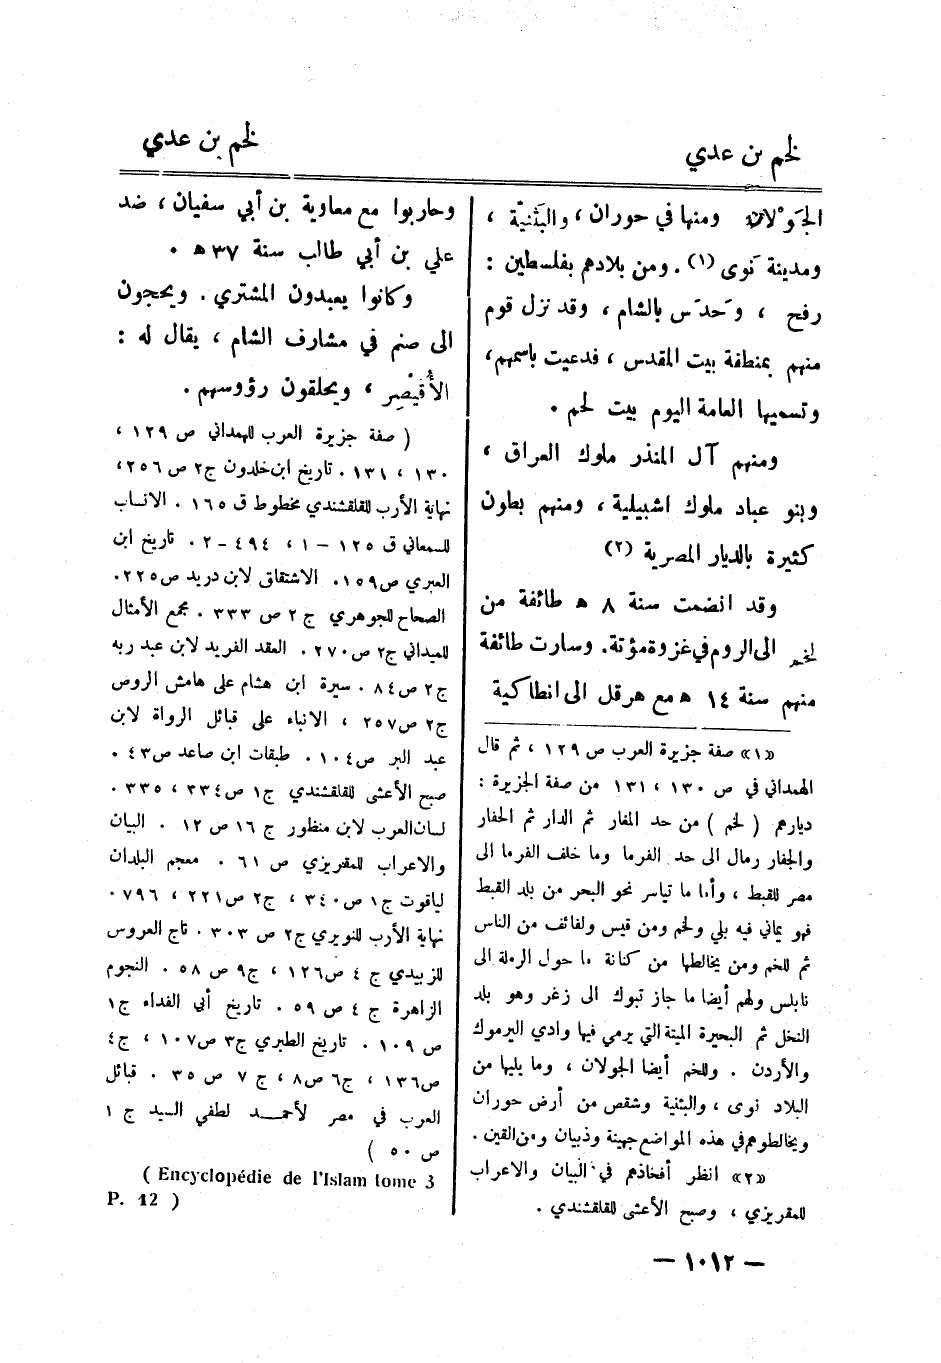 لخم بن عدي
لخم بن عدي
الجَوْلان ومنها في حوران ، والبَثَنيّة ،
ومدينة نَوى (١) . ومن بلادهم بفلسطين :
رفح ، وحَدَس بالشام ، وقد نزل قوم
منهم بمنطقة بيت المقدس ، فدعيت باسمهم ،
وتسميها العامة اليوم بيت لحم .
ومنهم آل المنذر ملوك العراق ،
وبنو عباد ملوك اشبيلية ، ومنهم بطون
كثيرة بالديار المصرية (٢)
وقد انضمت سنة ٨ ه طائفة من
لخم الى الروم في غزوة مؤتة . وسارت طائفة
منهم سنة ١٤ ه مع هرقل الى انطاكية
«١» صفة جزيرة العرب ص ١٢٩ ، ثم قال
الهمداني في ص ١٣٠ ، ١٣١ من صفة الجزيرة :
ديارهم ( لخم ) من حد المفار ثم الدار ثم الجفار
والجفار رمال الى حد الفرما وما خلف الفرما الى
مصر للقبط ، وأما ما تياسر نحو البحر من بلد القبط
فهو يماني فيه بلي ولخم ومن قيس ولفائف من الناس
ثم للخم ومن يخالطها من كنانة ما حول الرملة الى
نابلس ولهم أيضا ما جاز تبوك الى زغر وهو بلد
النخل ثم البحيرة الميتة التي يرمي فيها وادي اليرموك
والأردن . وللخم أيضا الجولان ، وما يليها من
البلاد نوى ، والبثنية وشقص من أرض حوران
ويخالطوهم في هذه المواضع جهينة وذبيان ومن القين .
«٢» انظر أفخاذهم في البيان والاعراب
للمقريزي ، وصبح الأعشى للقلقشندي .
وحاربوا مع معاوية بن أبي سفيان ، ضد
علي بن أبي طالب سنة ٣٧ ه .
وكانوا يعبدون المشتري . ويحجون
الى صنم في مشارف الشام ، يقال له :
الأُقَيْصِر ، ويحلقون رؤوسهم .
( صفة جزيرة العرب للهمداني ص ١٢٩ ،
١٣٠ ، ١٣١ . تاريخ ابن خلدون ج٢ ص ٢٥٦ ،
نهاية الأرب للقلقشندي مخطوط ق ١٦٥ . الانساب
للسمعاني ق ١٢٥ – ١ ، ٤٩٤ – ٢ . تاريخ ابن
العبري ص ١٥٩ . الاشتقاق لابن دريد ص ٢٢٥ .
الصحاح للجوهري ج ٢ ص ٣٣٣ . مجمع الأمثال
للميداني ج٢ ص ٢٧٠ . العقد الفريد لابن عبد ربه
ج٢ ص ٨٤ . سيرة ابن هشام على هامش الروض
ج٢ ص ٢٥٧ ، الانباء على قبائل الرواة لابن
عبد البر ص ١٠٤ . طبقات ابن صاعد ص ٤٣ .
صبح الأعشى للقلقشندي ج١ ص ٣٣٤ ، ٣٣٥ .
لسان العرب لابن منظور ج ١٦ ص ١٢ . البيان
والاعراب للمقريزي ص ٦١ . معجم البلدان
لياقوت ج١ ص ٣٤٠ ، ج٢ ص ٢٢١ ، ٧٩٦ .
نهاية الأرب للنويري ج٢ ص ٣٠٣ . تاج العروس
للزبيدي ج ٤ ص ١٢٦ ، ج٩ ص ٥٨ . النجوم
الزاهرة ج ٤ ص ٥٩ . تاريخ أبي الفداء ج١
ص ١٠٩ . تاريخ الطبري ج٣ ص ١٠٧ ، ج٤
ص ١٣٦ ، ج٦ ص ٨ ، ج ٧ ص ٣٥ . قبائل
العرب في مصر لأحمد لطفي السيد ج ١
ص ٥٠ )
( Encyclopédie de l'Islam tome 3
P. 12 )
— ١٠١٢ —